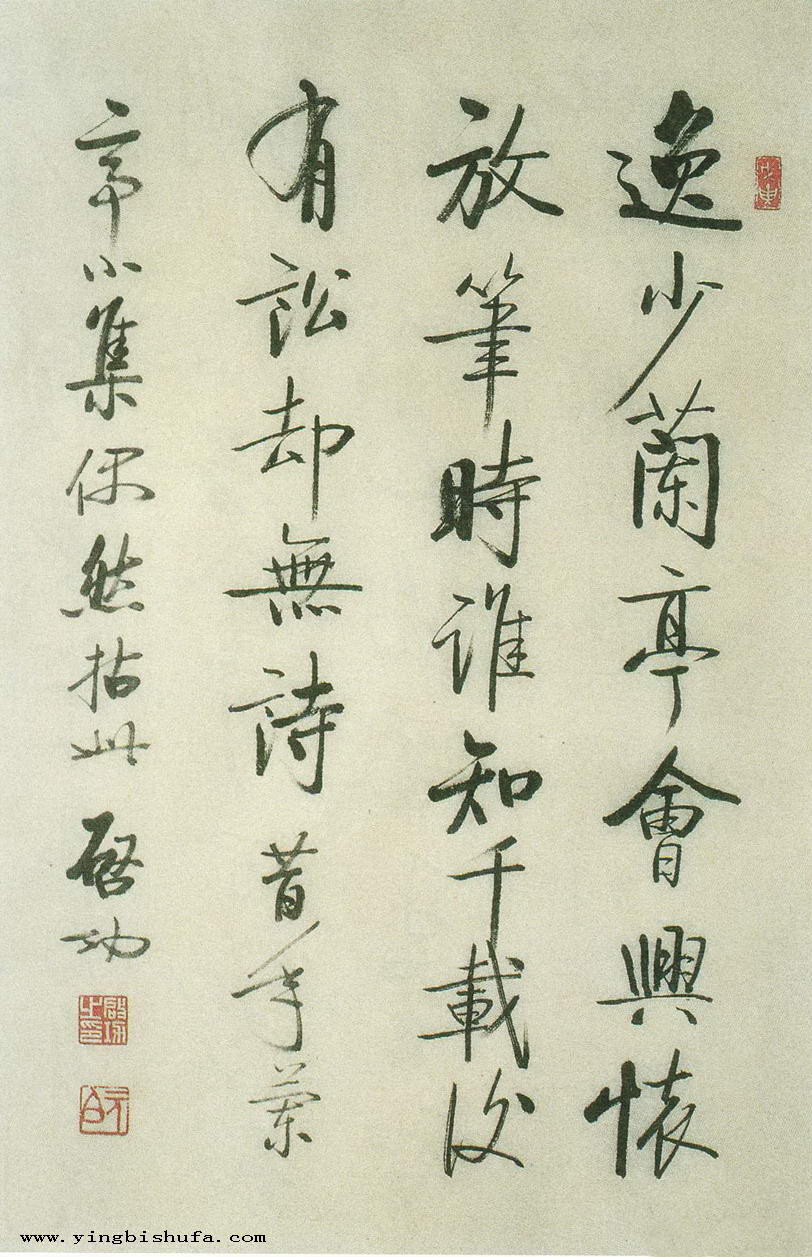 逸少蘭亭會興懷
放筆時誰知千載後
有訟却無詩 昔年蘭
亭小集偶然拈此 啓功
啟功之印
www.yingbishufa.com